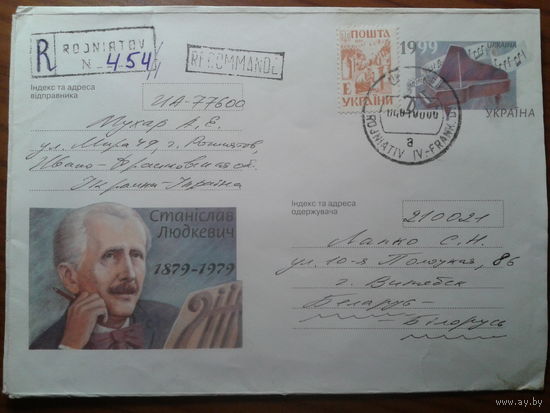 R ROJNIATOV
N 454
RECOMMANDE
ПОШТА
Е
УКРАЇНИ
1999
УКРАЇНА
УКРАЇНА
ROJNIATIV IV-FRANK
а
Індекс та адреса
відправника
UA-77600
Мухар А. Е.
ул. Мира 49, г. Рожнятов,
Ивано-Франковская об.
Україна
Станіслав
Людкевич
1879-1979
Індекс та адреса
одержувача
210021
Лапко С. Н.
ул. 10-я Полоцкая, 8б
г. Витебск
Беларусь -
- Білорусь
www.ay.by